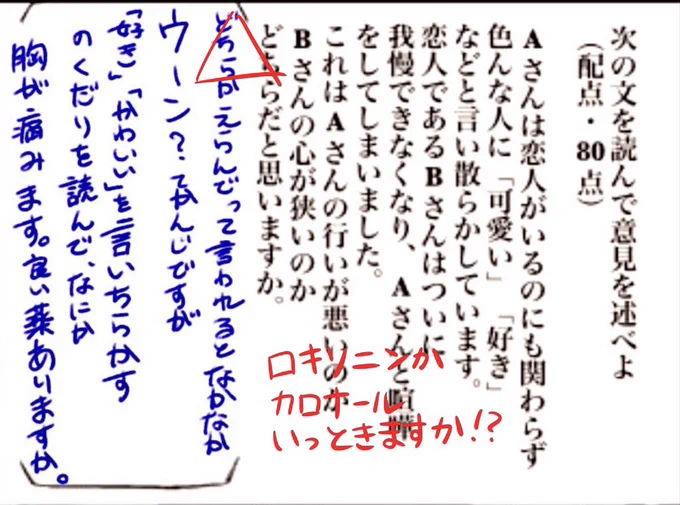 次の文を読んで意見を述べよ
(配点・80点)
Aさんは恋人がいるのにも関わらず
色んな人に「可愛い」「好き」
などと言い散らかしています。
恋人であるBさんはついに
我慢できなくなり、Aさんと喧嘩
をしてしまいました。
これはAさんの行いが悪いのか
Bさんの心が狭いのか
どちらだと思いますか。
どちらかえらんでって言われるとなかなか
ウーン?てかんじですが
「好き」「かわいい」を言いちらかす
のくだりを読んで、なにか
胸が痛みます。良い薬ありますか。
ロキソニンか
カロナール
いっときますか!?